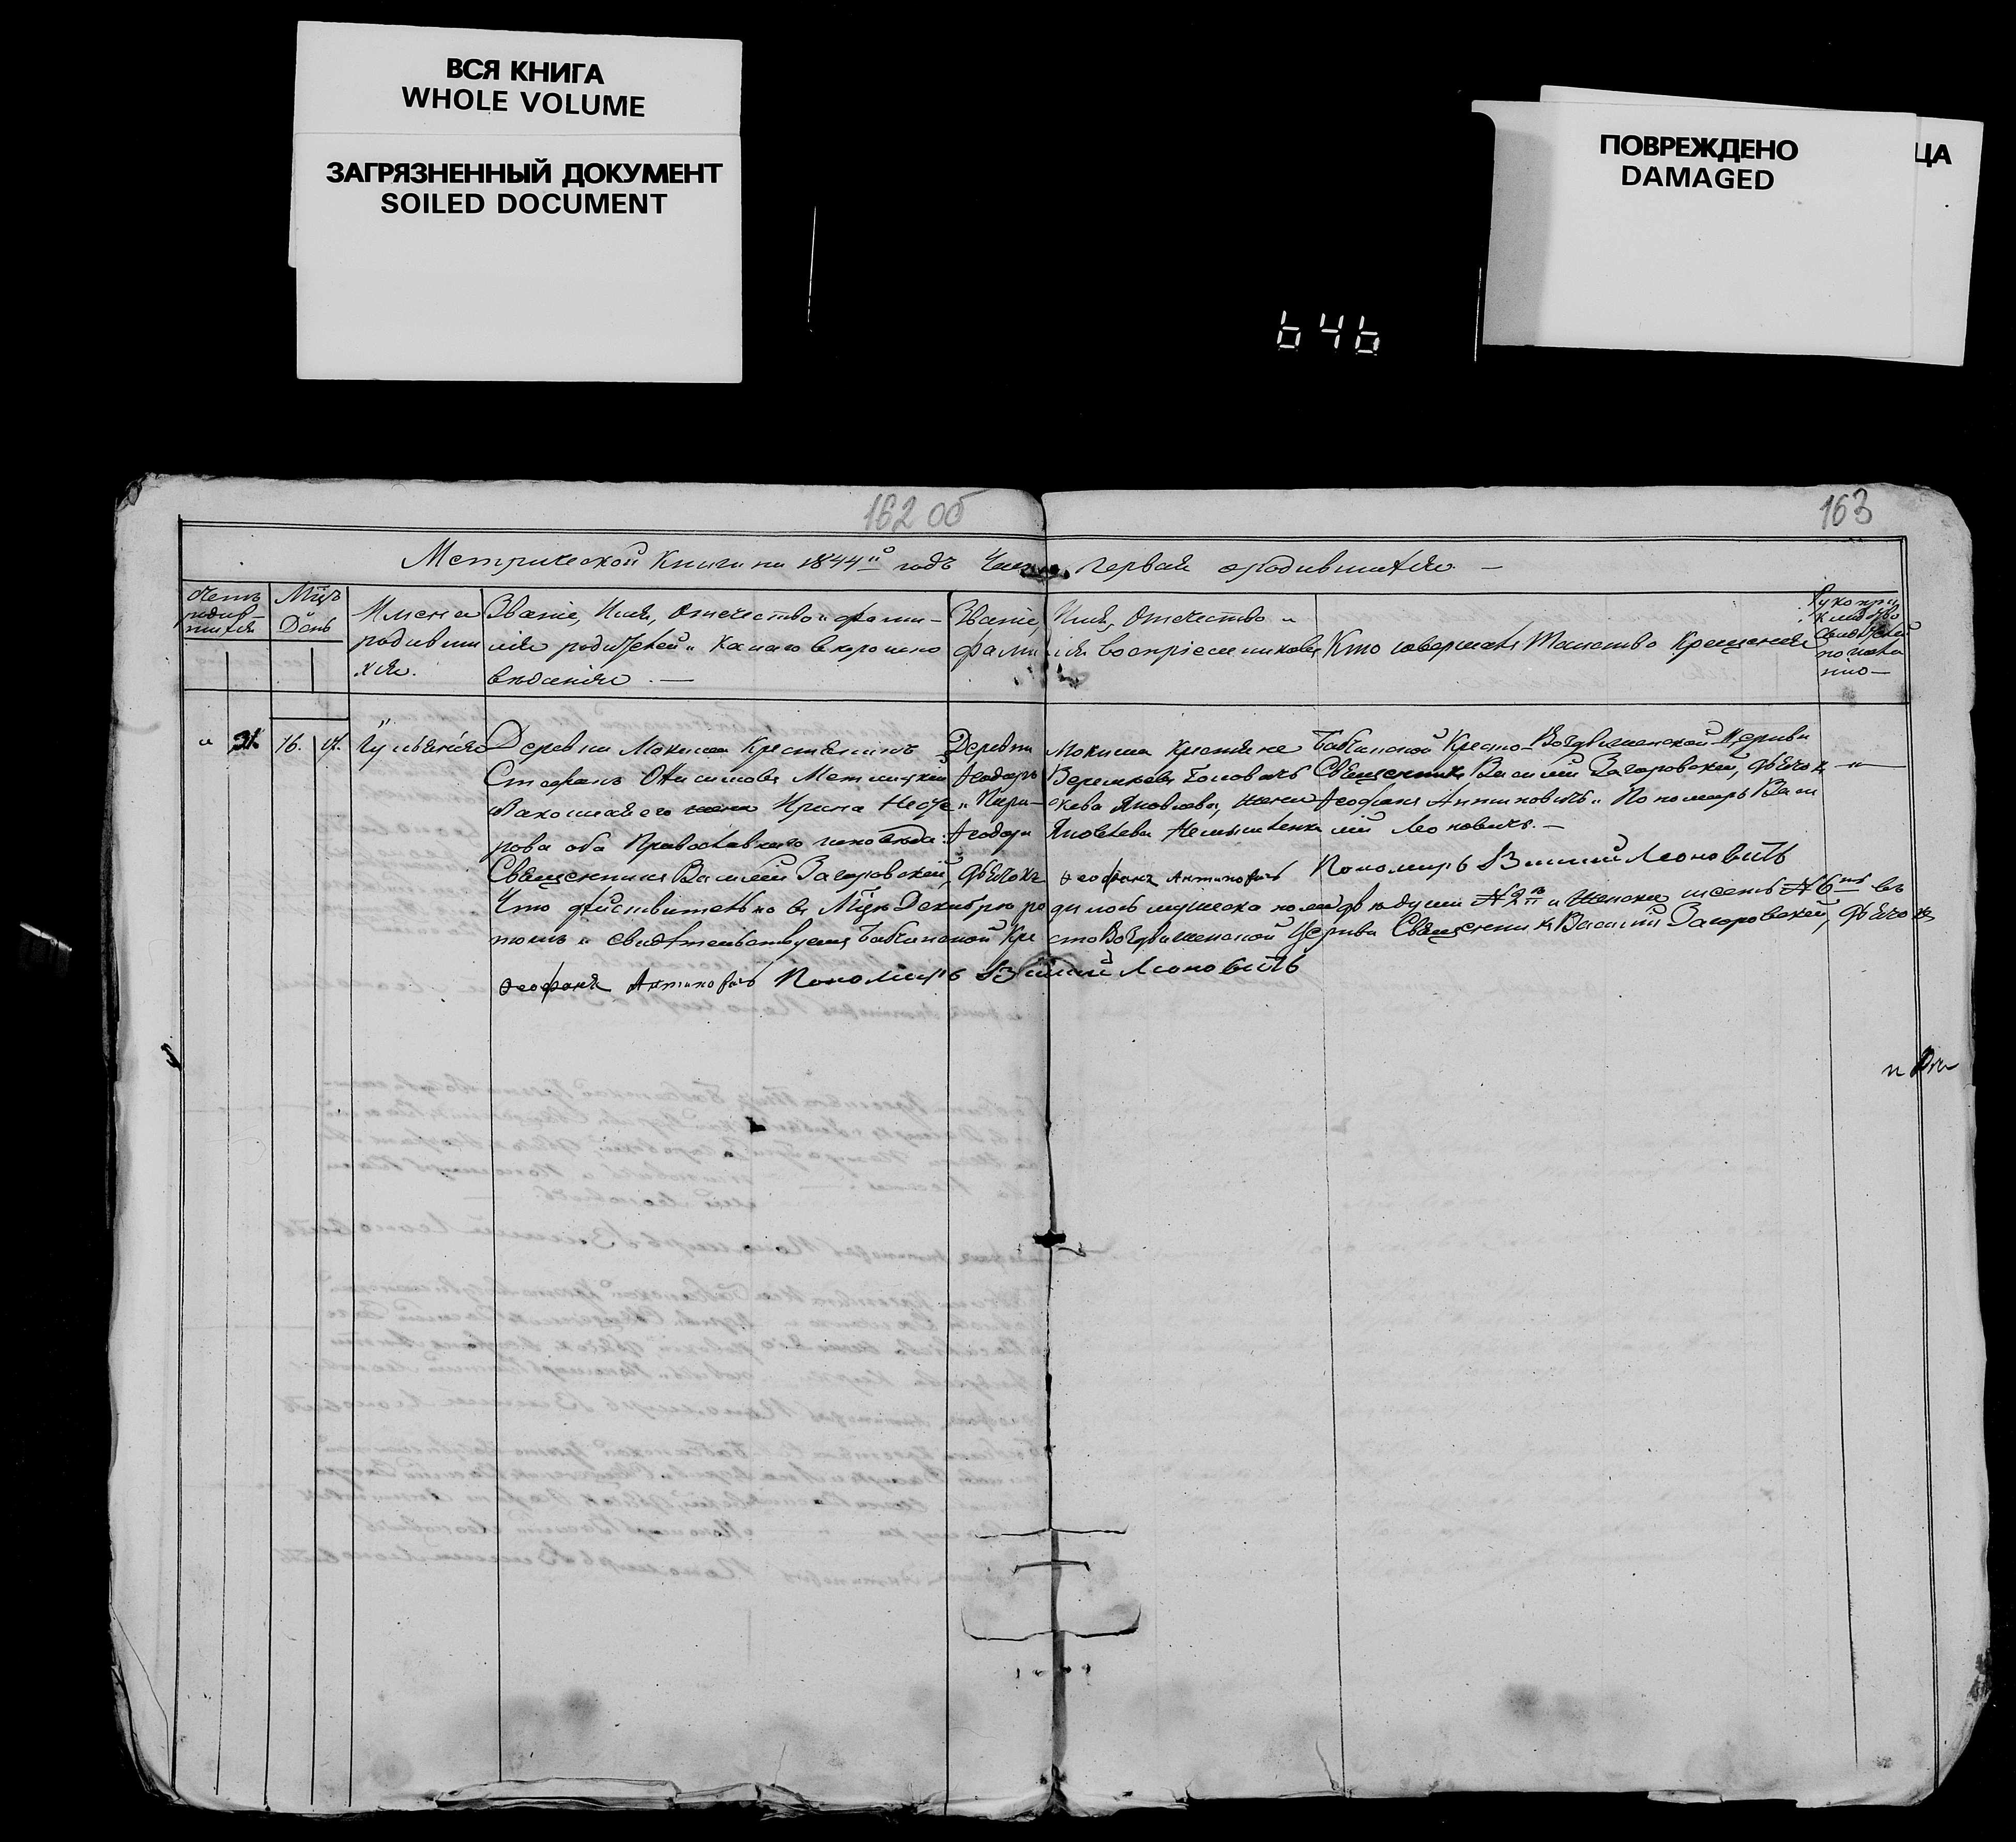 ВСЯ КНИГА
WHOLE VOLUME
ЗАГРЯЗНЕННЫЙ ДОКУМЕНТ
SOILED DOCUMENT
ПОВРЕЖДЕНО
DAMAGED
ЦА
646
162 об
163
Метрической Книги на 1844й годъ Часть первая о родившихся —
Мцъ
День
Имена
родивши
хся.
Званіе, Имя, Отечество и фами-
лія родителей и какого вероиспо
вѣданія. —
Званіе, Имя, Отечество и
фамилія воспріемниковъ
Кто совершалъ Таинство Крещенія
Рукопри
кладство
Свидѣтелей
по жела
нію —
" 31. 16. 17. Іуліанія
Деревни Мокиша Крестьянинъ
Стефанъ Онисимовъ
законная его жена Ирина Федо
рова оба Православнаго исповѣда:
Деревни Мокиша Крестьяне
Феодоръ Головачъ
и Пара-
скева Яковлева, жена
Феодора Яковлева
Бабчинской Кресто-Воздвиженской Церкви
Священникъ Василій Загоровскій, Дьячокъ
Феофанъ Антиповичъ и Пономарь Васи
лій Леоновичъ. —
Священникъ Василій Загоровскій, Дьячокъ Феофанъ Антиповичъ Пономарь Василій Леоновичъ
Что дѣйствительно въ Мцѣ Декабрѣ родилось мужеска пола двѣ души №2 и Женска шесть №6 въ
томъ и свидѣтельствуемъ Бабчинской КрестоВоздвиженской Церкви Священникъ Василій Загоровскій, Дьячокъ
Феофанъ Антиповичъ Пономарь Василій Леоновичъ